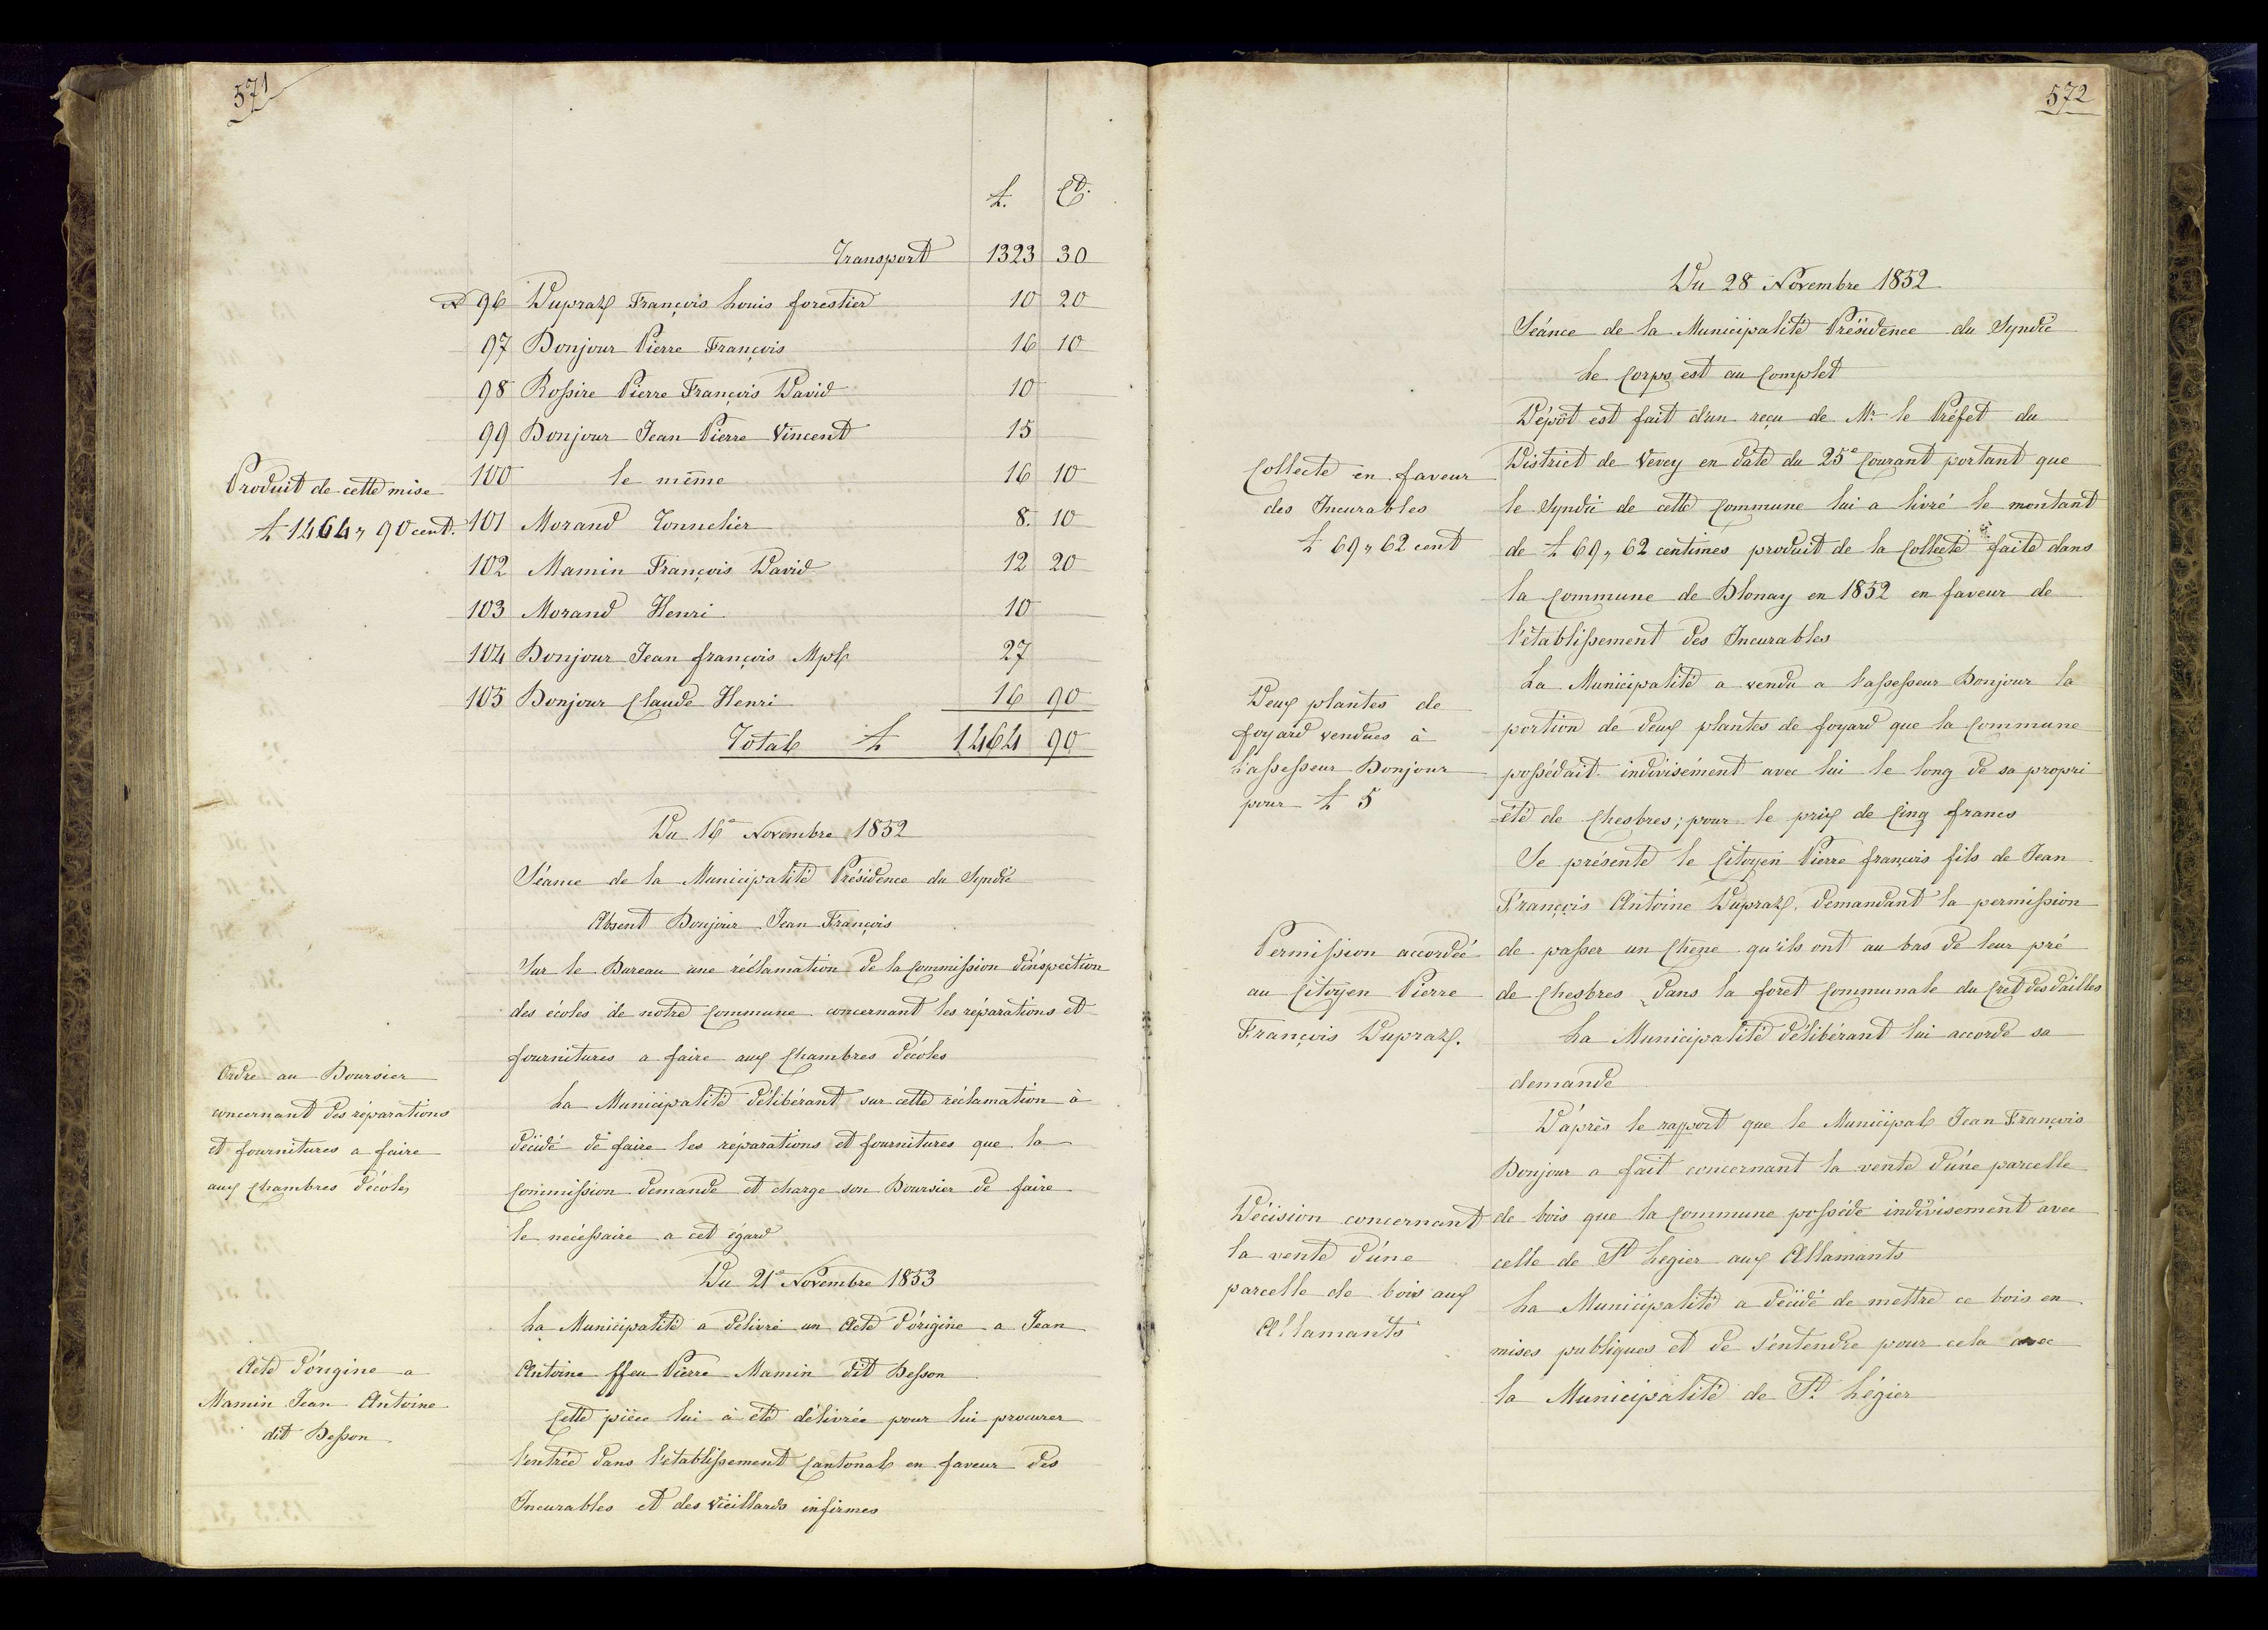 571
£. Ct.
Transport 1323 30
N° 96 Dupraz François Louis forestier 10 20
97 Bonjour Pierre François 16 10
98 Rossire Pierre François David 10
99 Bonjour Jean Pierre Vincent 15
100 le même 16 10
101 Morand Tonnelier 8. 10
102 Mamin François David 12 20
103 Morand Henri 10
104 Bonjour Jean françois Mpl 27
105 Bonjour Claude Henri 16 90
Total £ 1464 90
Produit de cette mise
£ 1464 " 90 cent.
Du 16e Novembre 1852
Séance de la Municipalité Présidence du Syndic
Absent Bonjour Jean François
Sur le Bureau une réclamation de la Commission d'inspection
des écoles de notre Commune concernant les réparations et
fournitures a faire aux Chambres d'écoles
Ordre au Boursier
concernant des réparations
et fournitures a faire
aux Chambres d'écoles
La Municipalité délibérant sur cette réclamation à
décidé de faire les réparations et fournitures que la
Commission demande et charge son Boursier de faire
le nécessaire a cet égard
Du 21e Novembre 1853
La Municipalité a délivré un Acte d'origine a Jean
Antoine ffeu Pierre Mamin dit Besson
Acte d'origine a
Mamin Jean Antoine
dit Besson
Cette pièce lui à été délivrée pour lui procurer
l'entrée dans l'établissement Cantonal en faveur des
Incurables et des vieillards infirmes
572
Du 28 Novembre 1852
Séance de la Municipalité Présidence du Syndic
Le Corps est au Complet
Dépôt est fait d'un reçu de Mr le Préfet du
District de Vevey en date du 25e Courant portant que
le Syndic de cette Commune lui a livré le montant
de £ 69 " 62 centimes produit de la Collecte faite dans
la Commune de Blonay en 1852 en faveur de
l'établissement des Incurables
Collecte en faveur
des Incurables
£ 69 " 62 cent
La Municipalité a vendu a l'assesseur Bonjour la
portion de deux plantes de foyard que la Commune
possédait indivisément avec lui le long de sa propri
-été de Chesbres; pour le prix de Cinq francs
Deux plantes de
foyard vendues à
l'assesseur Bonjour
pour £ 5
Se présente le Citoyen Pierre françois fils de Jean
François Antoine Dupraz, demandant la permission
de passer un Chene qu'ils ont au bas de leur pré
de Chesbres dans la foret Communale du Cret des dailles
Permission accordée
au Citoyen Pierre
François Dupraz.
La Municipalité délibérant lui accorde sa
demande
D'après le rapport que le Municipal Jean François
Bonjour a fait concernant la vente d'une parcelle
de bois que la Commune possède indivisement avec
celle de St Legier aux Allamants
Décision concernant
la vente d'une
parcelle de bois aux
Allamants
La Municipalité a décidé de mettre ce bois en
mises publiques et de s'entendre pour cela avec
la Municipalité de St Légier